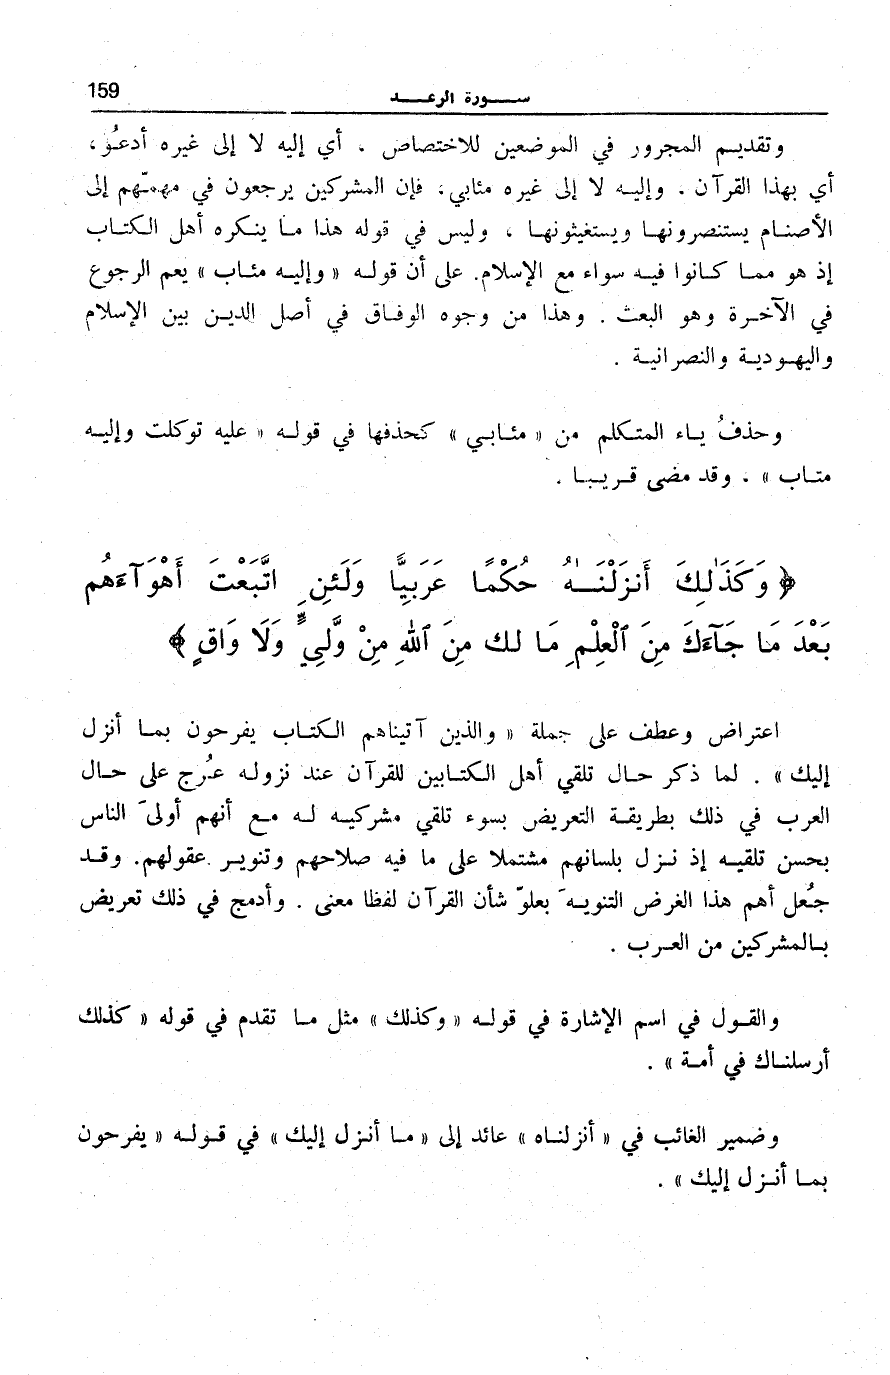 159
سورة الرعد
وتقديم المجرور في الموضعين للاختصاص . أي إليه لا إلى غيره أدعُو،
أي بهذا القرآن . وإليه لا إلى غيره مئابي، فإن المشركين يرجعون في مهمّهم إلى
الأصنام يستنصرونها ويستغيثونها ، وليس في قوله هذا ما ينكره أهل الكتاب
إذ هو مما كانوا فيه سواء مع الإسلام. على أن قوله « وإليه مئاب » يعم الرجوع
في الآخرة وهو البعث . وهذا من وجوه الوفاق في أصل الدين بين الإسلام
واليهودية والنصرانية .
وحذفُ ياء المتكلم من « مئابي » كحذفها في قوله « عليه توكلت وإليه
متاب » . وقد مضى قريبا .
﴿ وَكَذَٰلِكَ أَنزَلْنَـٰهُ حُكْمًا عَرَبِيًّا وَلَئِنِ اتَّبَعْتَ أَهْوَآءَهُم
بَعْدَ مَا جَآءَكَ مِنَ ٱلْعِلْمِ مَا لك مِنَ ٱللهِ مِنْ وَّلِيٍّ وَلَا وَاقٍ ﴾
اعتراض وعطف على جملة « والذين آتيناهم الكتاب يفرحون بما أنزل
إليك » . لما ذكر حال تلقي أهل الكتابين للقرآن عند نزوله عرُج على حال
العرب في ذلك بطريقة التعريض بسوء تلقي مشركيه له مع أنهم أولىَ الناس
بحسن تلقيه إذ نزل بلسانهم مشتملا على ما فيه صلاحهم وتنوير عقولهم. وقد
جعُل أهم هذا الغرض التنويهَ بعلوّ شأن القرآن لفظا معنى . وأدمج في ذلك تعريض
بالمشركين من العرب .
والقول في اسم الإشارة في قوله « وكذلك » مثل ما تقدم في قوله « كذلك
أرسلناك في أمة » .
وضمير الغائب في « أنزلناه » عائد إلى « ما أنزل إليك » في قوله « يفرحون
بما أنزل إليك » .